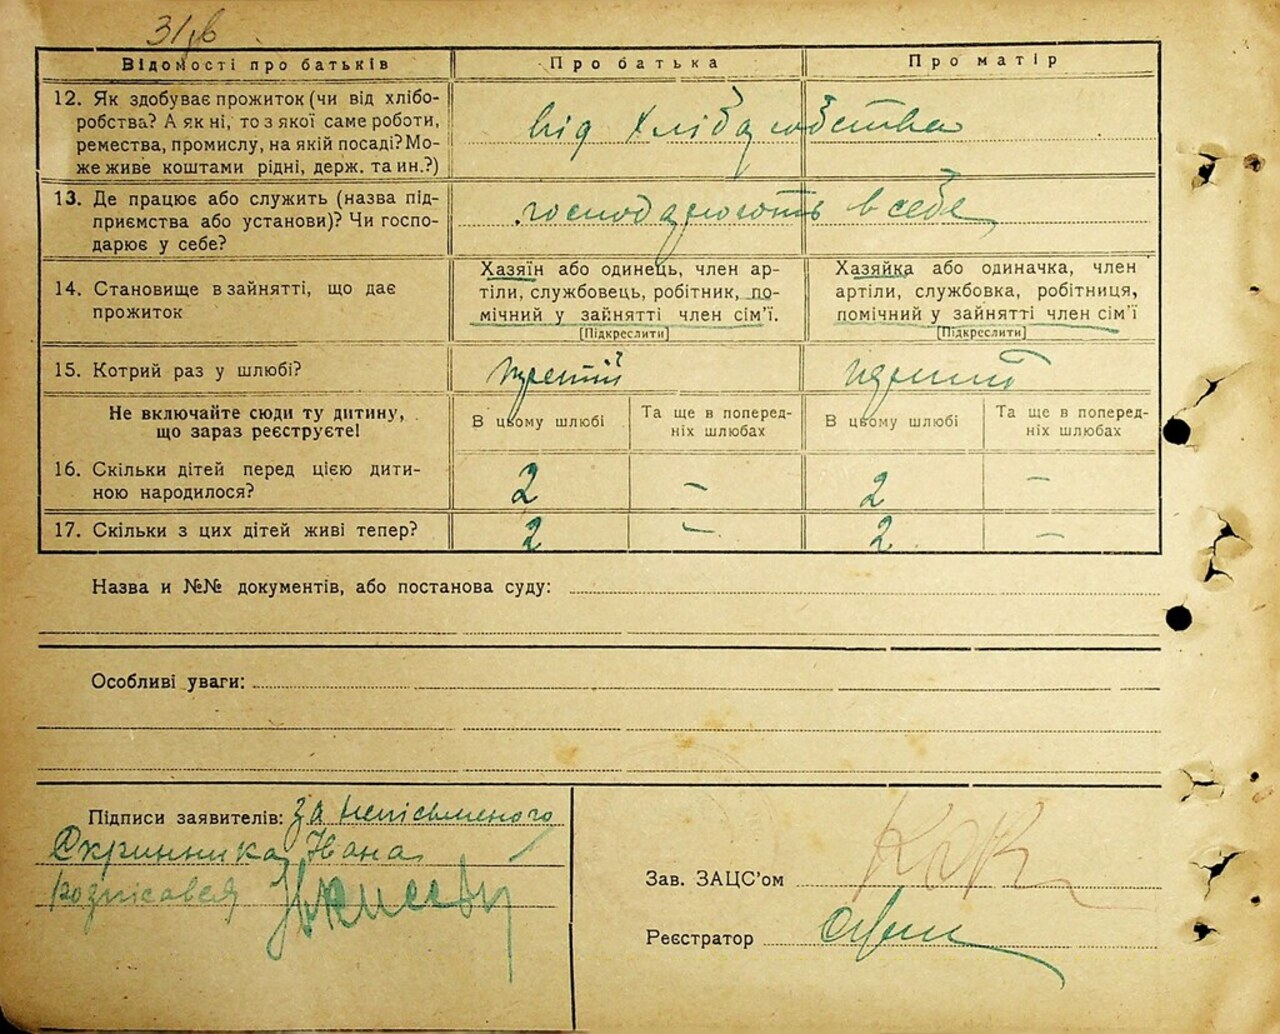 31зв
Відомості про батьків Про батька Про матір
12. Як здобуває прожиток (чи від хлібо-
робства? А як ні, то з якої саме роботи,
ремества, промислу, на якій посаді? Мо-
же живе коштами рідні, держ. та ин.?)
від хліборобства
13. Де працює або служить (назва під-
приємства або установи)? Чи госпо-
дарює у себе?
господарюють в себе
14. Становище в зайнятті, що дає
прожиток
Хазяїн або одинець, член ар-
тіли, службовець, робітник, по-
мічний у зайнятті член сім'ї.
[Підкреслити]
Хазяйка або одиначка, член
артіли, службовка, робітниця,
помічний у зайнятті член сім'ї
[Підкреслити]
15. Котрий раз у шлюбі?
Не включайте сюди ту дитину,
що зараз реєструєте!
В цьому шлюбі
Та ще в поперед-
ніх шлюбах
В цьому шлюбі
Та ще в поперед-
ніх шлюбах
16. Скільки дітей перед цією дити-
ною народилося?
2 – 2 –
17. Скільки з цих дітей живі тепер?
2 – 2 –
Назва и №№ документів, або постанова суду:
Особливі уваги:
Підписи заявителів: за неписьменного
Скринника Івана
розписався
Зав. ЗАЦС'ом
Реєстратор